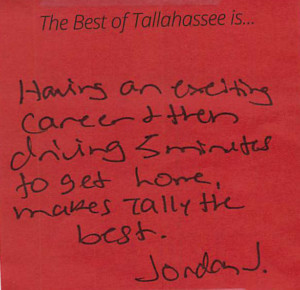 The Best of Tallahassee is...
Having an exciting
career & then
driving 5 minutes
to get home,
makes Tally the
best.
Jordan J.